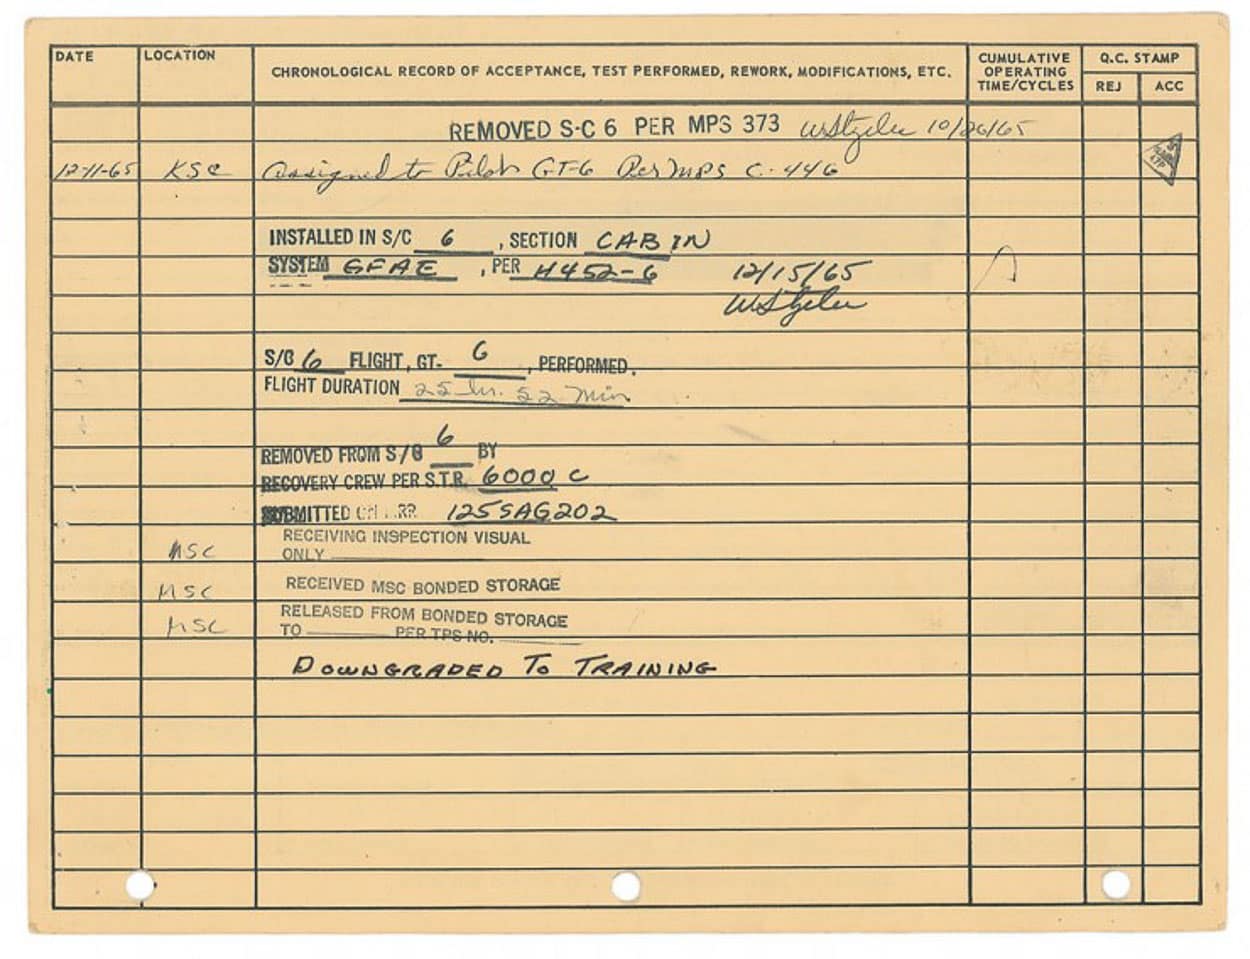 DATE LOCATION CHRONOLOGICAL RECORD OF ACCEPTANCE, TEST PERFORMED, REWORK, MODIFICATIONS, ETC. CUMULATIVE OPERATING TIME/CYCLES Q.C. STAMP
REJ ACC
REMOVED S-C 6 PER MPS 373 10/26/65
12-11-65 KSC Assigned to Pilot GT-6 Per MPS C-446
INSTALLED IN S/C 6, SECTION CABIN
SYSTEM GFAE, PER H452-6 12/15/65
S/C 6 FLIGHT, GT- 6, PERFORMED.
FLIGHT DURATION 25 hr. 52 Min
REMOVED FROM S/C 6 BY
RECOVERY CREW PER S.T.R. 6000 C
SUBMITTED RR 125SAG202
MSC RECEIVING INSPECTION VISUAL
ONLY
MSC RECEIVED MSC BONDED STORAGE
MSC RELEASED FROM BONDED STORAGE
TO PER TPS NO.
DOWNGRADED TO TRAINING